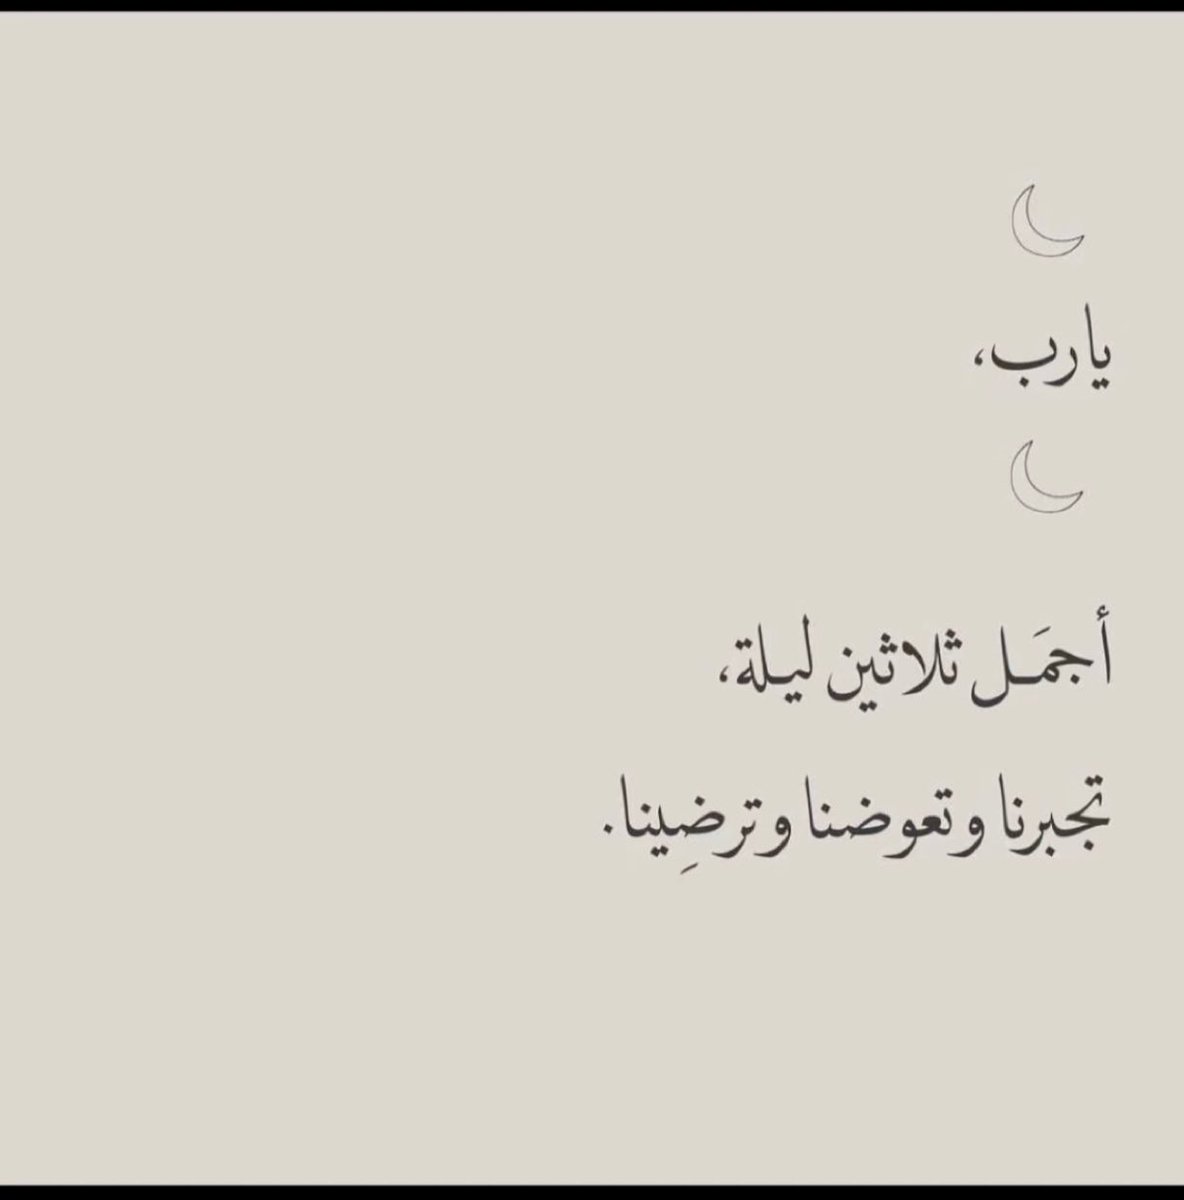 يارب،
أجمَل ثلاثين ليلة،
تجبرنا وتعوضنا وترضِينا.